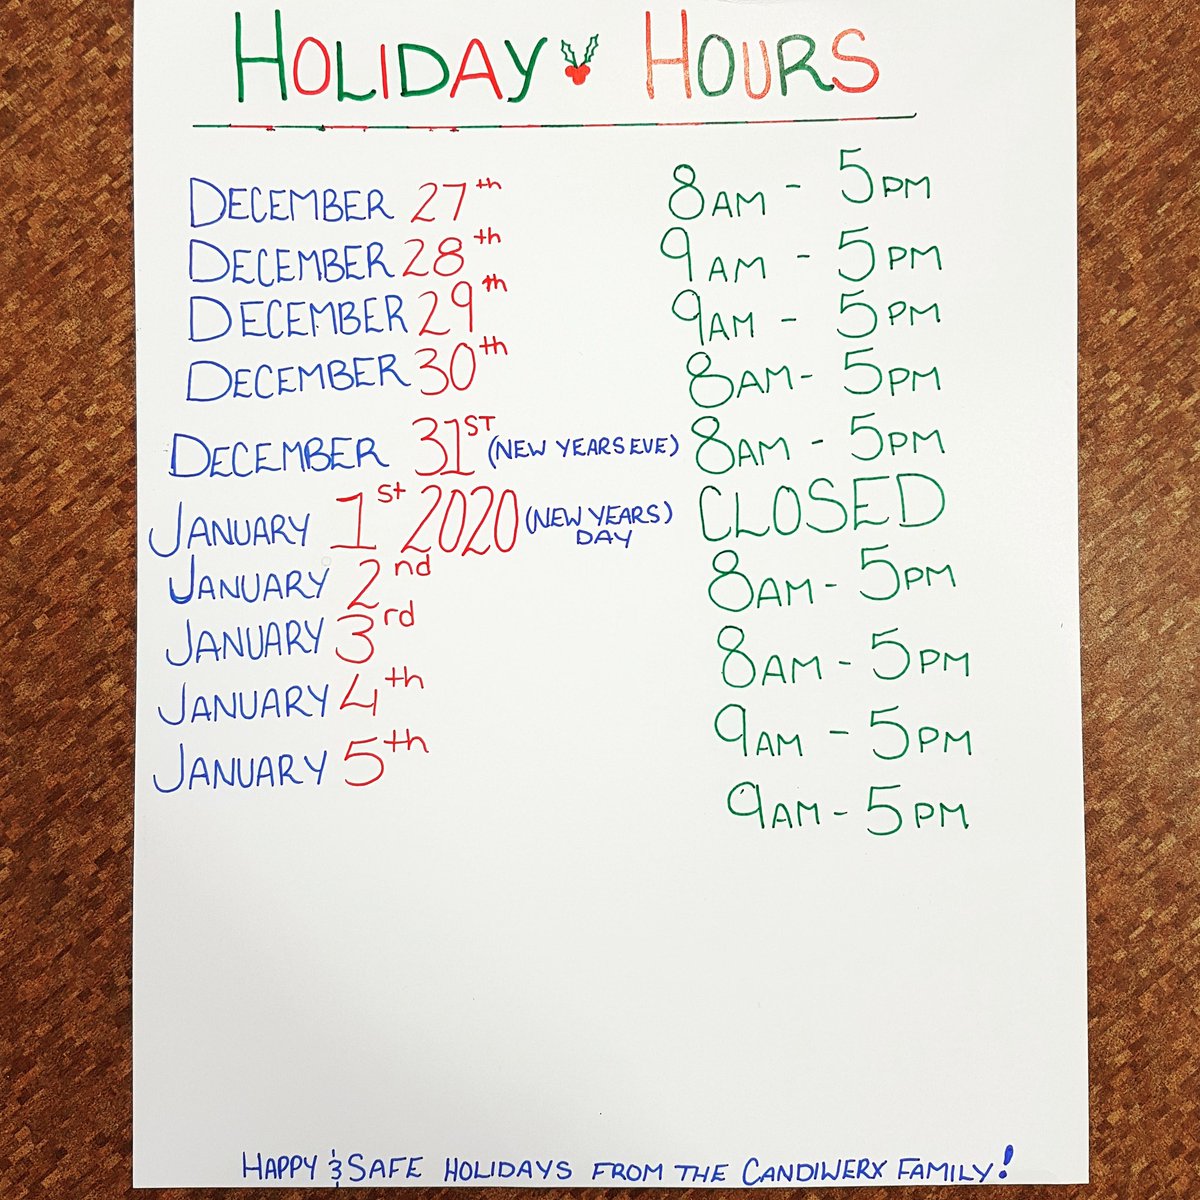 HOLIDAY HOURS
DECEMBER 27th 8AM - 5PM
DECEMBER 28th 9AM - 5PM
DECEMBER 29th 9AM - 5PM
DECEMBER 30th 8AM - 5PM
DECEMBER 31ST (NEW YEARS EVE) 8AM - 5PM
JANUARY 1st 2020 (NEW YEARS) DAY CLOSED
JANUARY 2nd 8AM - 5PM
JANUARY 3rd 8AM - 5PM
JANUARY 4th 9AM - 5PM
JANUARY 5th 9AM - 5PM
HAPPY & SAFE HOLIDAYS FROM THE CANDIWERX FAMILY!